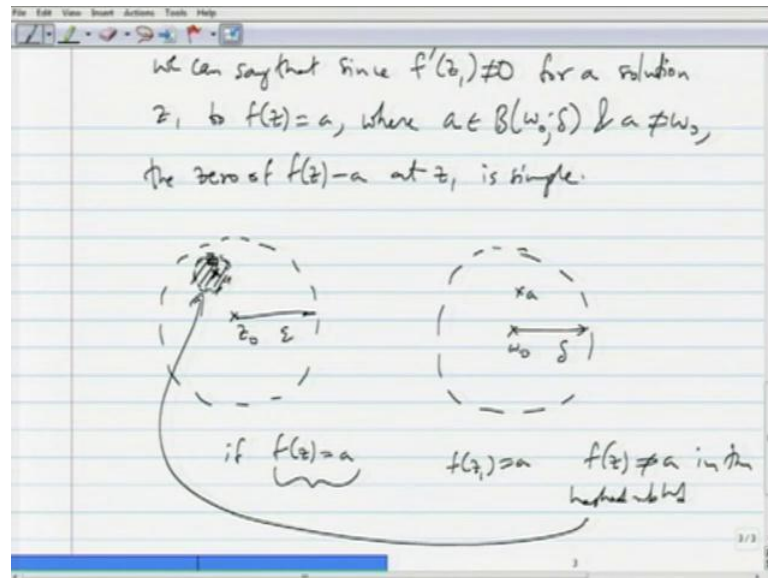 File Edit View Insert Actions Tools Help
we can say that since f'(z₁)≠0 for a solution
z₁ to f(z)=a, where a ∈ B(w₀;δ) & a ≠ w₀,
the zero of f(z)-a at z₁ is simple.
z₀ ε
×a
w₀ δ
if f(z)=a f(z₁)=a f(z)≠a in the
hashed nbhd
3/3
3